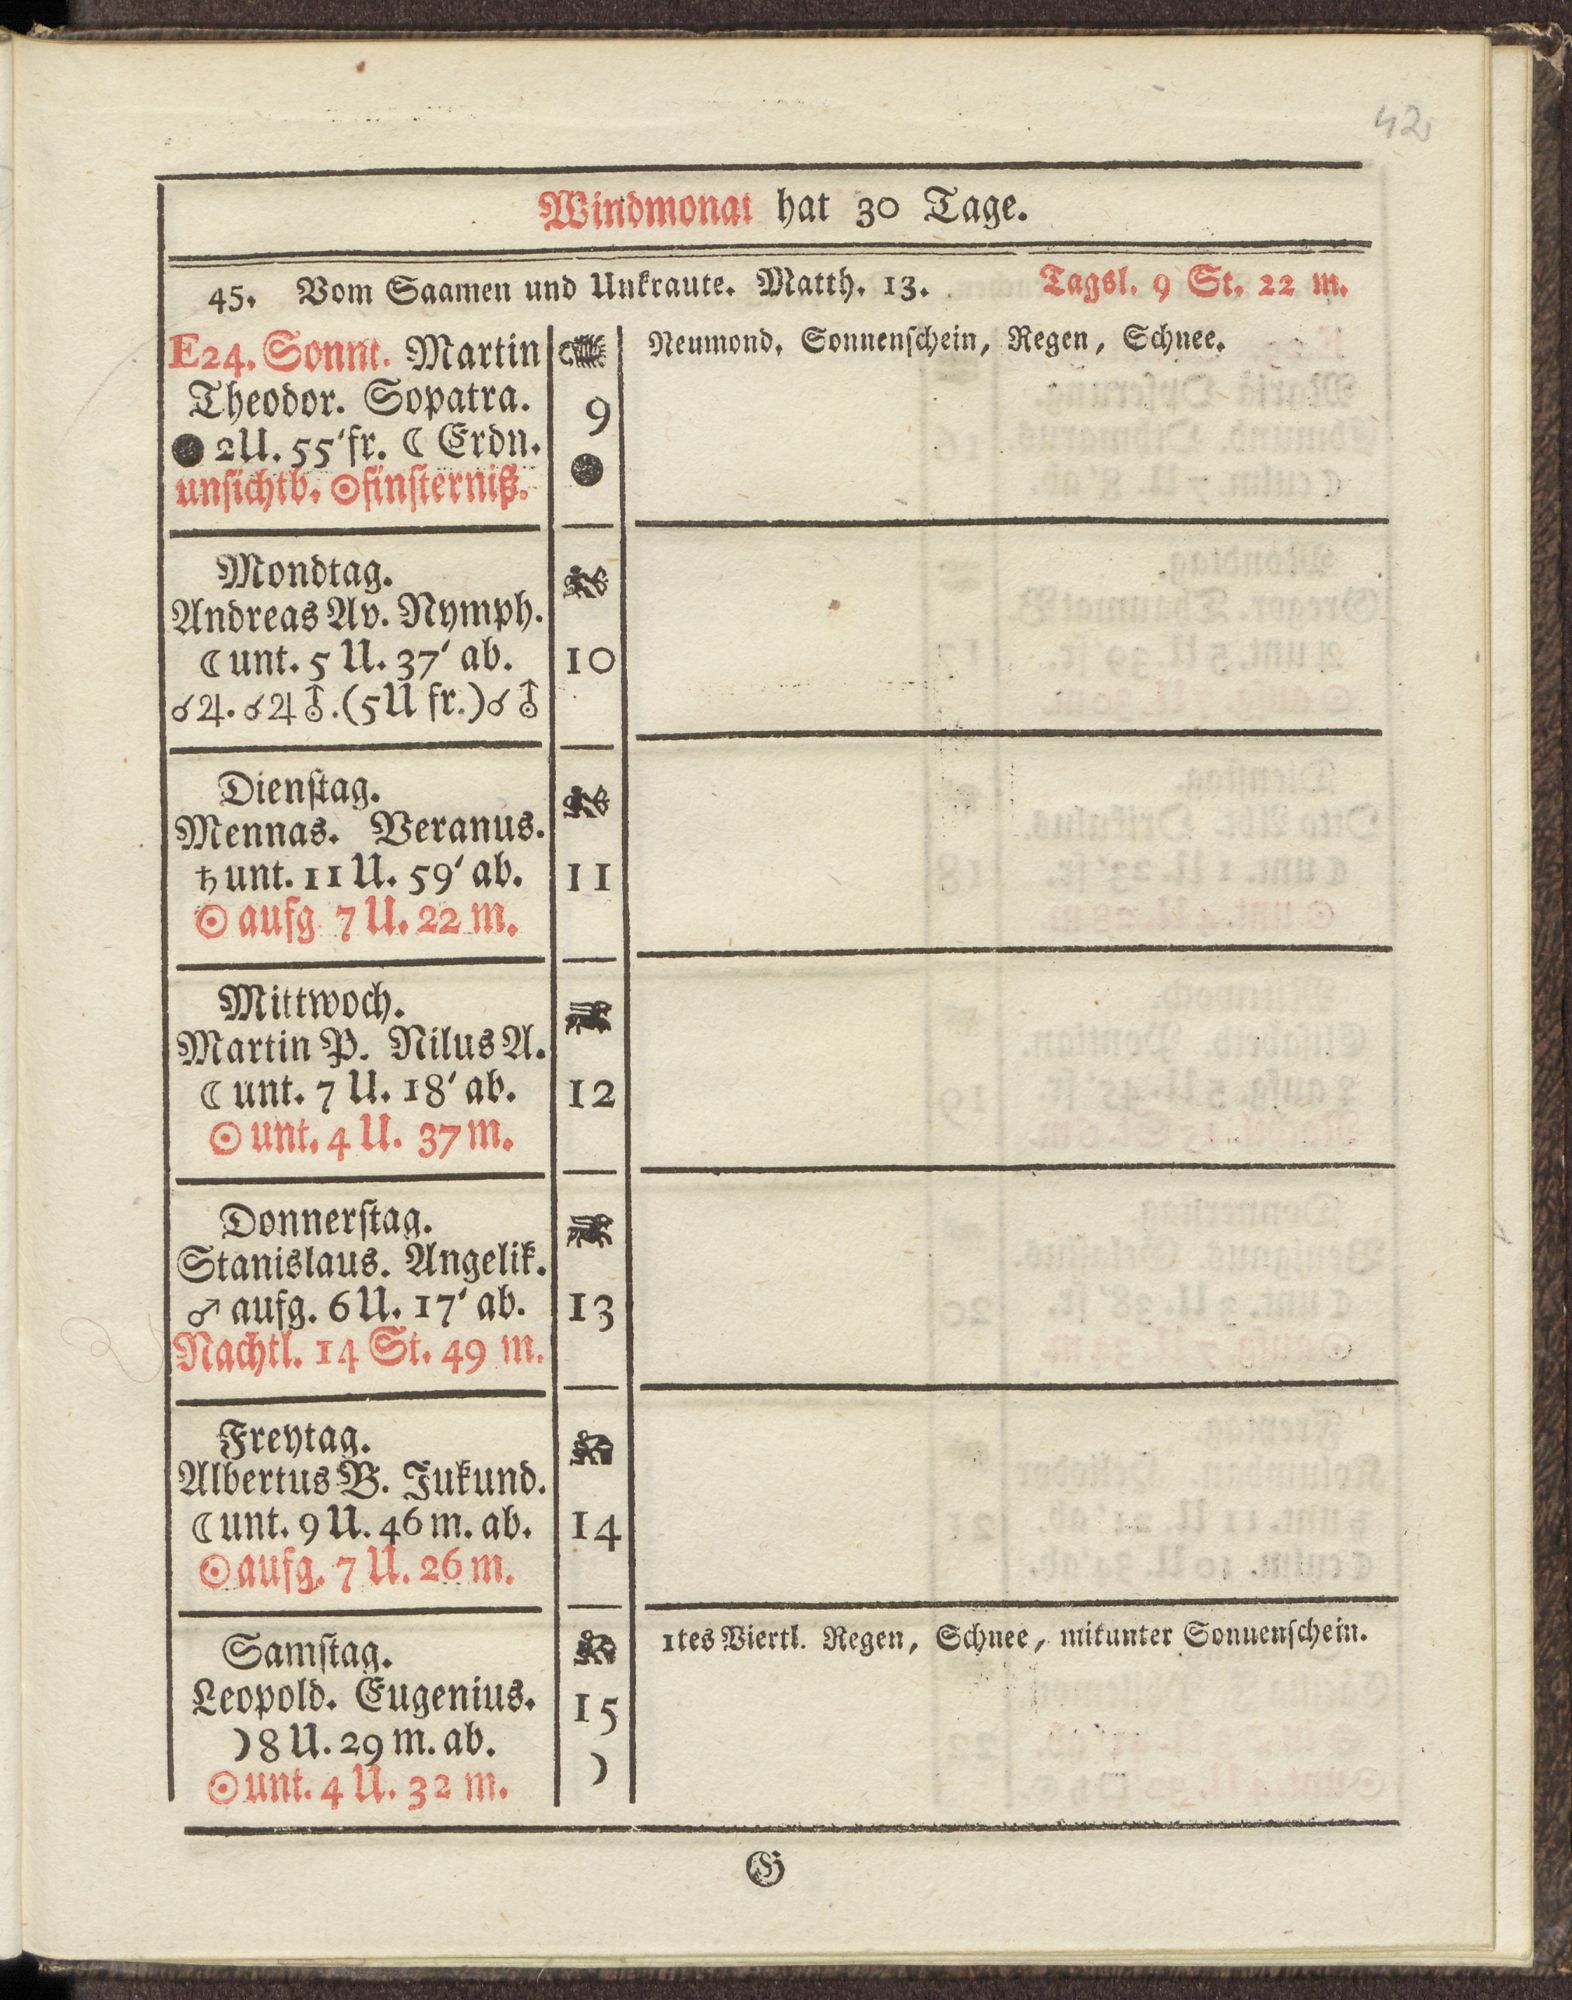 42
Windmonat hat 30 Tage.
45. Vom Saamen und Unkraute. Matth. 13. Tagsl. 9 St. 22 m.
E24. Sonnt. Martin
Theodor. Sopatra.
● 2U. 55'fr. ☾ Erdn.
unsichtb. ☉finsterniß.
9
●
Neumond. Sonnenschein, Regen, Schnee.
Mondtag.
Andreas Av. Nymph.
☾ unt. 5 U. 37' ab.
☌♃. ☌♃⛢.(5U fr.)☌⛢
10
Dienstag.
Mennas. Veranus.
♄ unt. 11 U. 59' ab.
☉ aufg 7 U. 22 m.
11
Mittwoch.
Martin P. Nilus A.
☾ unt. 7 U. 18' ab.
☉ unt. 4 U. 37 m.
12
Donnerstag.
Stanislaus. Angelik.
♂ aufg. 6 U. 17' ab.
Nachtl. 14 St. 49 m.
13
Freytag.
Albertus B. Jukund.
☾ unt. 9 U. 46 m. ab.
☉ aufg. 7 U. 26 m.
14
Samstag.
Leopold. Eugenius.
☽ 8 U. 29 m. ab.
☉ unt. 4 U. 32 m.
15
☽
1tes Viertl. Regen, Schnee, mitunter Sonnenschein.
G